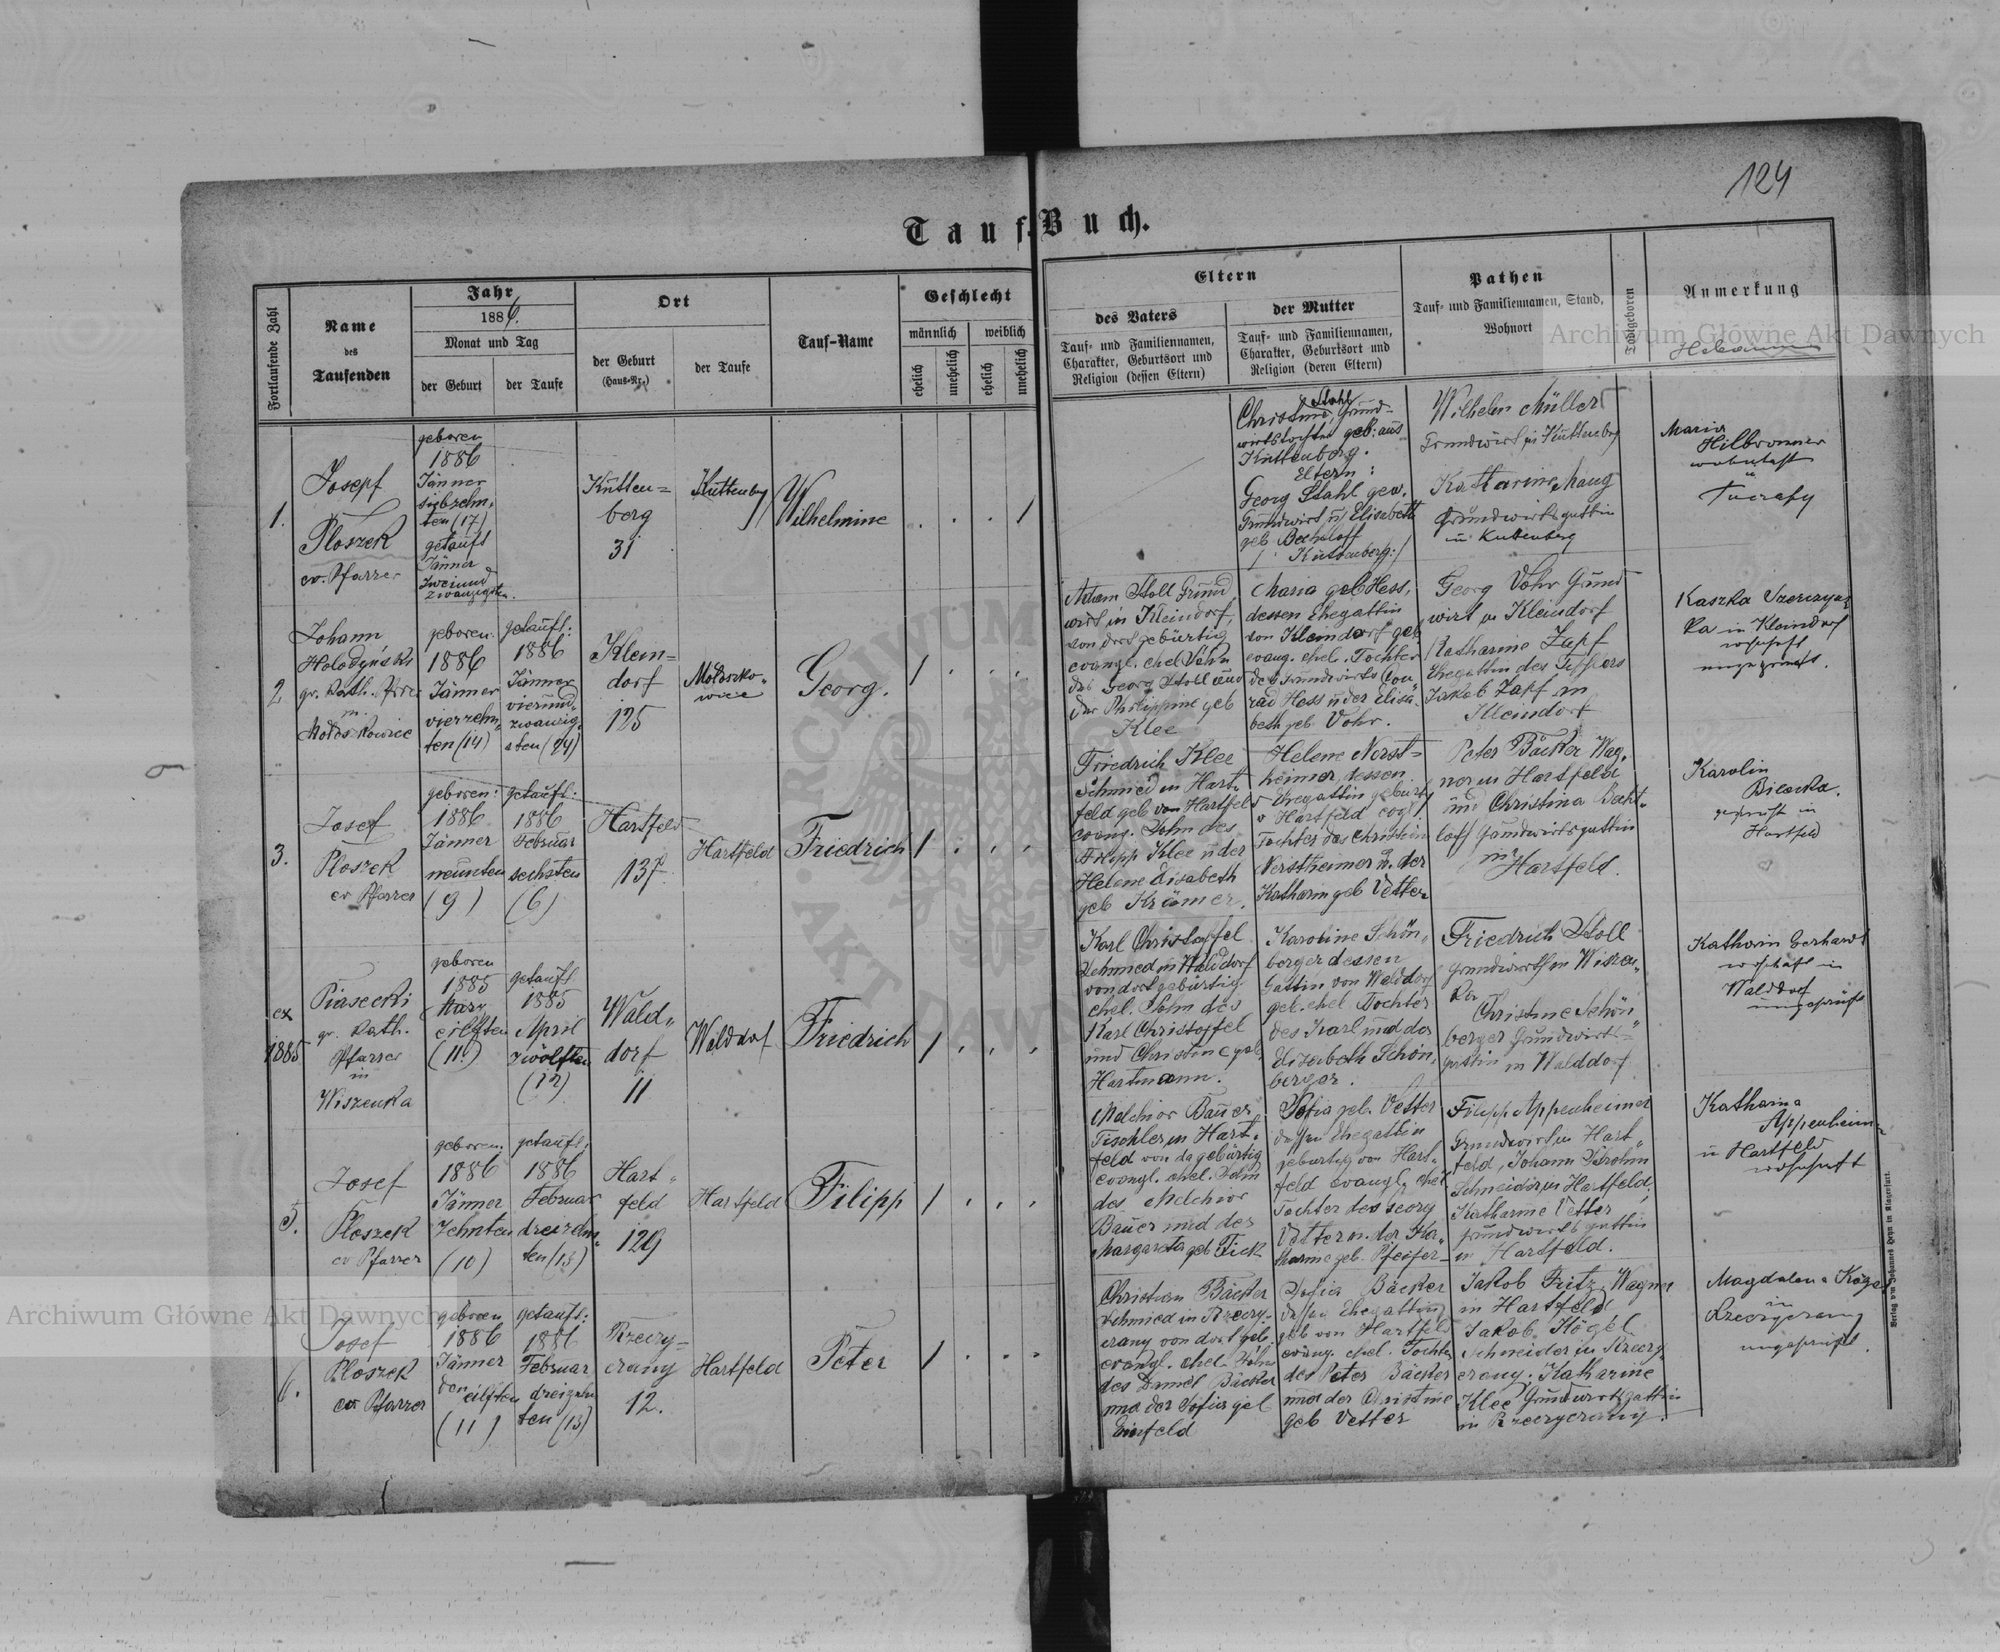 124
Tauf-Buch.
Fortlaufende Zahl
Name
des
Taufenden
Jahr
1886.
Monat und Tag
der Geburt
der Taufe
Ort
der Geburt
(Haus-Nr.)
der Taufe
Tauf-Name
Geschlecht
männlich
weiblich
ehelich
unehelich
ehelich
unehelich
Eltern
des Vaters
Tauf- und Familiennamen,
Charakter, Geburtsort und
Religion (dessen Eltern)
der Mutter
Tauf- und Familiennamen,
Charakter, Geburtsort und
Religion (deren Eltern)
Pathen
Tauf- und Familiennamen, Stand,
Wohnort
Todtgeboren
Anmerkung
1.
Josepf
Ploszek
ev. Pfarrer
geboren
1886
Jänner
siebzehn,
ten (17)
getauft
Jänner
Zweiund
zwanzigsten.
Kutten=
berg
31
Kuttenberg
Wilhelmine
1
Christine Stahl, Grund-
wirtstochter geb: aus
Kuttenberg.
Eltern:
Georg Stahl gew.
Grundwirt u Elisabeth
geb Bechtloff
/: Kuttenberg:/
Wilhelm Müller
Grundwirt in Kuttenberg
Katharine Maug
Grundwirtsgattin
in Kuttenberg
Maria
Hilbronner
wohnhaft
2
Johann
Holodyński
gr. Kath. Pfarrer
in
Mołoszkowice
geboren.
1886
Jänner
vierzehn,
ten (14)
getauft:
1886
Jänner
vierund,
zwanzig,
sten (24)
Klein=
dorf
125
Mołoszko-
wice
Georg.
1
Adam Stoll Grund
wirt in Kleindorf,
von dort gebürtig
evangl. ehel Sohn
des Georg Stoll und
der Philippine geb
Klee
Maria geb Hess,
dessen Ehegattin
von Kleindorf geb
evang. ehel. Tochter
des Grundwirts Con,
rad Hess u der Elisa,
beth geb. Vohr.
Georg Vohr Grund
wirt in Kleindorf
Katharine Zapf
Ehegattin des Töpfers
Jakob Zapf in
Kleindorf
Kaszka
ka in Kleindorf
wohnhaft
ungeprüft.
3.
Josef
Ploszek
ev Pfarrer
geboren:
1886
Jänner
neunten
(9)
getauft:
1886
Februar
sechsten
(6)
Hartfeld
137.
Hartfeld
Friedrich
1
Friedrich Klee
Schmied in Hart-
feld geb von Hartfeld
evang. Sohn des
Filipp Klee u der
Helene Elisabeth
geb Krämer.
Helene Nerst=
heimer, dessen
Ehegattin gebürt
v Hartfeld evgl.
Tochter des Christian
Nerstheimer u. der
Katharin geb Vetter
Peter Bäcker Wag,
ner in Hartfeld
und Christina Becht-
loff Grundwirtsgattin
in Hartfeld.
Karolin
Bilecka.
geprüft in
Hartfeld
ex
1885
Piasecki
gr. Kath.
Pfarrer
in
Wiszenka
geboren
1885
März
eilften
(11)
getauft
1885
April
zwölften
(12)
Wald,
dorf
11
Walddorf
Friedrich
1
Karl Christoffel
Schmied in Walddorf
von dort gebürtig
ehel. Sohn des
Karl Christoffel
und Christine geb
Hartmann.
Karoline Schön,
berger dessen
Gattin von Walddorf
geb. ehel Tochter
des Karl und der
Elisabeth Schön,
berger.
Friedrich Stoll
Grundwirth in Wiszen,
ka
Christine Schön
berger Grundwirts=
gattin in Walddorf
Katharin Gerhardt
wohnhaft in
Walddorf
ungeprüft
5.
Josef
Ploszek
ev Pfarrer
geboren:
1886
Jänner
Zehnten
(10)
getauft:
1886
Februar
dreizehn,
ten (13)
Hart,
feld
129
Hartfeld
Filipp
1
Melchior Bauer
Tischler in Hart,
feld von da gebürtig
evangl. ehel. Sohn
des Melchior
Bauer und der
Margareta geb Fick
Sofia geb. Vetter
dessen Ehegattin
gebürtig von Hart,
feld evangl. ehel
Tochter des Georg
Vetter u. der Ka,
tharine geb. Pfeifer
Filipp Appenheimer
Grundwirt in Hart,
feld, Johann Strohm
Schneider in Hartfeld,
Katharine Vetter
Grundwirts gattin
in Hartfeld.
Katharina
Appenheim-
in Hartfeld
wohnhaft
6.
Josef
Ploszek
ev Pfarrer
geboren
1886
Jänner
den eilften
(11)
getauft:
1886
Februar
dreizehn
ten (13)
Rzeczy-
czany
12.
Hartfeld
Peter
1
Christian Bäcker
Schmied in Rzeczy-
czany von dort geb.
evangl. ehel. Sohn
des Daniel Bäcker
und der Sofia geb
Einfeld
Sofia Bäcker
dessen Ehegattin
geb von Hartfeld
evang. ehel. Tochter
des Peter Bäcker
und der Christine
geb Vetter
Jakob Fritz, Wagner
in Hartfeld
Jakob Kögel
Schneider in Rzeczy-
czany. Katharine
Klee Grundwirtsgattin
in Rzeczyczany.
Magdalena Kögel
in
Rzeczyczany
ungeprüft.
Verlag von Johannes Heyn in Klagenfurt.
Archiwum Główne Akt Dawnych
Archiwum Główne Akt Dawnych